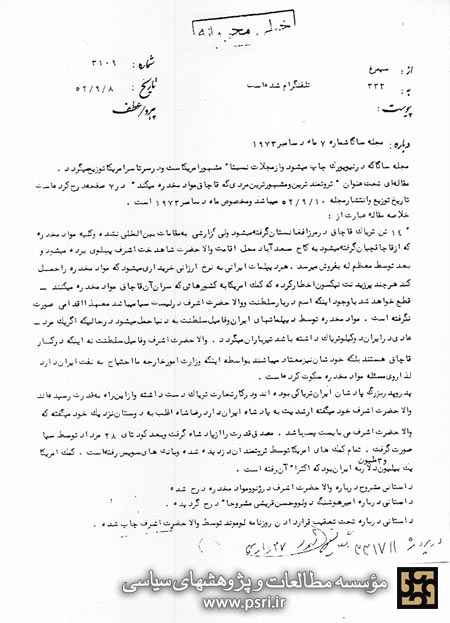 خیلی محرمانه
از : سیمرغ
شماره : ۳۱۰۹
به : ۳۳۲ تلفنگرام شده است
تاریخ : ۵۲/۹/۸
پیوست :
پیرو/عطف
درباره : مجله ساگا شماره ۷ ماه دسامبر ۱۹۷۳
مجله ساگا که در نیویورک چاپ میشود و از مجلات نسبتاً مشهور امریکا است و در سرتاسر امریکا توزیع میگردد .
مقاله‌ای تحت عنوان " ثروتمند ترین و مشهورترین مردی که قاچاق مواد مخدره میکند " در ۷ صفحه درج کرده است
تاریخ توزیع و انتشار مجله ۵۲/۹/۱۰ میباشد و مخصوص ماه دسامبر ۱۹۷۳ است .
خلاصه مقاله عبارت از :
" ۱۴ تن تریاک قاچاق در مرز افغانستان گرفته میشود ولی گزارشی به مقامات بین‌المللی نشده و کلیه مواد مخدره
که از قاچاقچیان گرفته میشود به کاخ سعدآباد محل اقامت والا حضرت شاهدخت اشرف پهلوی برده میشود و
بعد توسط معظم له بفروش میرسد . هر دیپلمات ایرانی به نرخ ارزانی خریداری میشود که مواد مخدره را حمل
کند هر چند پرزیدنت نیکسون اخطار کرده که کمک امریکا به کشورهائی که سران آن قاچاق مواد مخدره میکنند -
قطع خواهد شد با وجود اینکه اسم دربار سلطنت و والا حضرت اشرف در لیست سیا میباشد معهذا اقدامی صورت
نگرفته است . مواد مخدره توسط دیپلماتهای ایران و فامیل سلطنت به دنیا حمل میشود در حالیکه اگر یک مرد -
عادی در ایران دو کیلو تریاک داشته باشد تیرباران میگردد . والا حضرت اشرف و فامیل سلطنت نه اینکه در کار
قاچاق هستند بلکه خودشان نیز معتاد میباشند بواسطه اینکه وزارت امور خارجه ما احتیاج به نفت ایران دارد
لذا روی مسئله مواد مخدره سکوت کرده است .
پدر و پدر بزرگ پادشاه ایران تریاکی بوده اند و در کار تجارت تریاک دست داشته و از این راه به قدرت رسیده‌اند
والا حضرت اشرف خود میگفته ارشدیت به پادشاه ایران دارد رضا شاه اغلب به دوستان نزدیک خود میگفته که
والا حضرت اشرف می بایست پسر باشد . مصدق قدرت را از پادشاه گرفت و بعد کودتای ۲۸ مرداد توسط سیا
صورت گرفت . تمام کمک های امریکا توسط ثروتمندان دزدیده شده و بانک های سویس رفته است . کمک امریکا
یک بیلیون دلار به ایران بود که اکثراً آن رفته است .
داستانی مشروح درباره والا حضرت اشرف در ژنو و مواد مخدره درج شده
داستانی درباره امیرهوشنگ دولو و حسن قریشی مشروحاً درج گردیده .
داستانی درباره تحت تعقیب قرار دادن روزنامه لوموند توسط والا حضرت اشرف چاپ شده .
مؤسسه مطالعات و پژوهشهای سیاسی
www.psri.ir